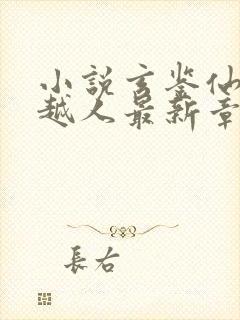 小説玄鉴仙
越人最新章
長右